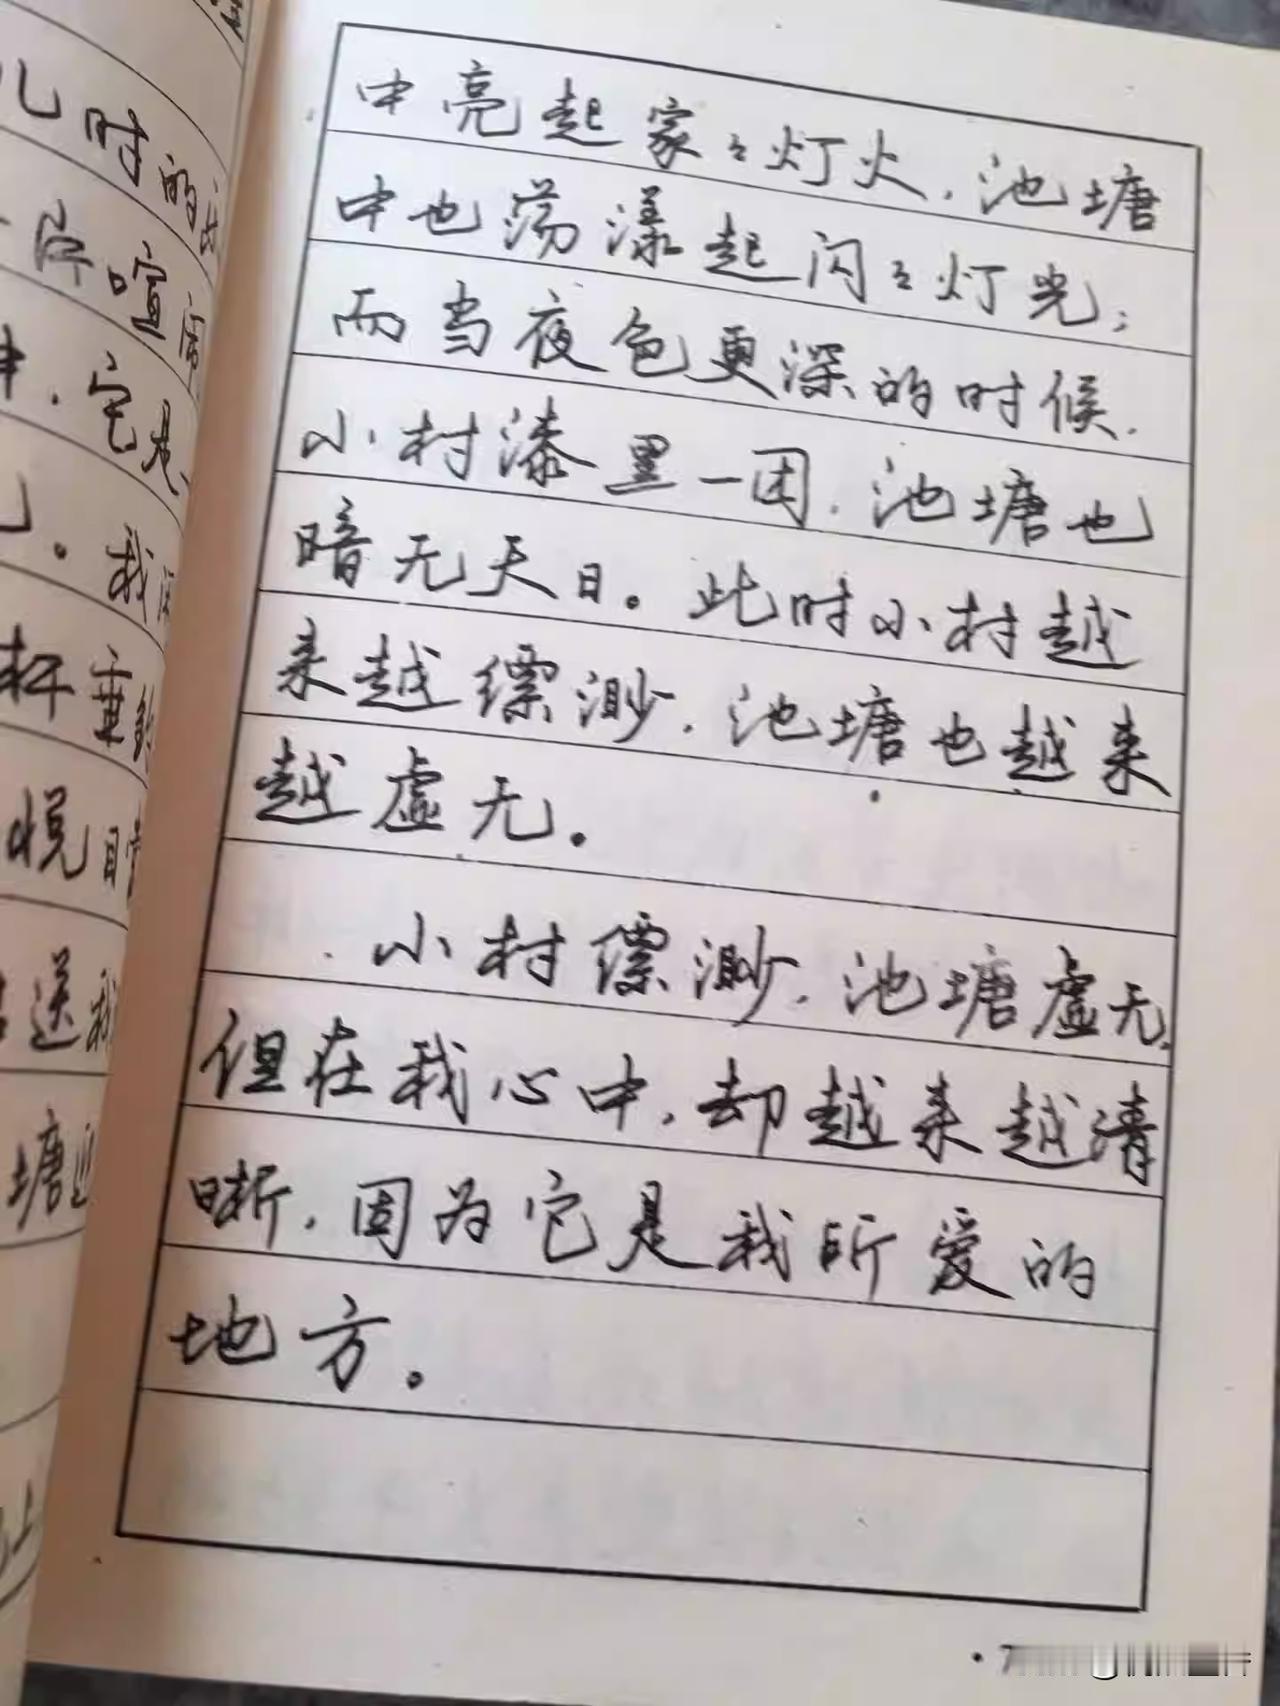 儿时的
片喧闹
中，它是
。我
杯垂
悦目
送我
塘边
上
中亮起家々灯火，池塘
中也荡漾起闪々灯光；
而当夜色更深的时候，
小村漆黑一团，池塘也
暗无天日。此时小村越
来越缥渺，池塘也越来
越虚无。
小村缥渺，池塘虚无，
但在我心中，却越来越清
晰，因为它是我所爱的
地方。